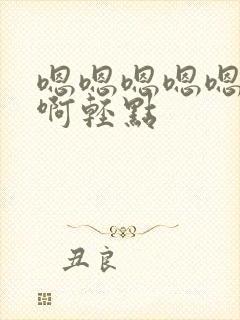 嗯嗯嗯嗯嗯
啊輕點
丑良